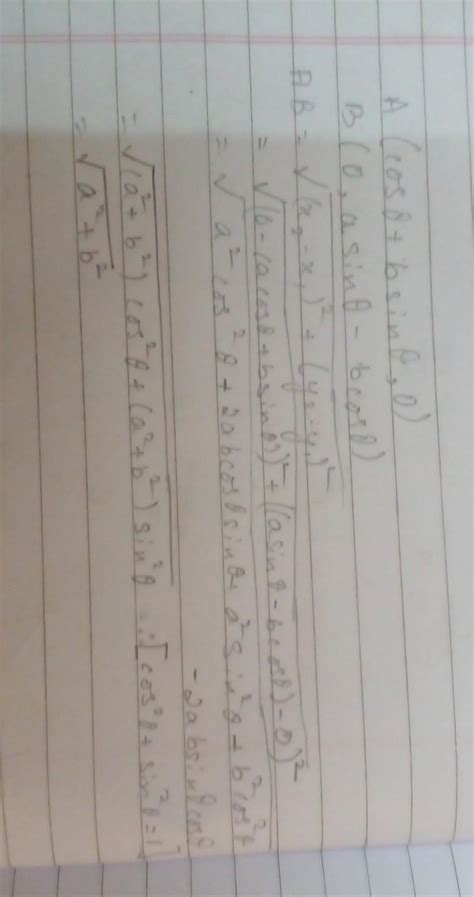 A (cosθ + b sinθ, 0)
B (0, a sinθ - b cosθ)
AB = √(x₂ - x₁)² + (y₂ - y₁)²
= √(0 - (a cosθ + b sinθ))² + ((a sinθ - b cosθ) - 0)²
= √a² cos²θ + 2ab cosθ sinθ + a² sin²θ + b² cos²θ
- 2ab sinθ cosθ
= √(a² + b²) cos²θ + (a² + b²) sin²θ ∴ [cos²θ + sin²θ = 1]
= √a² + b²